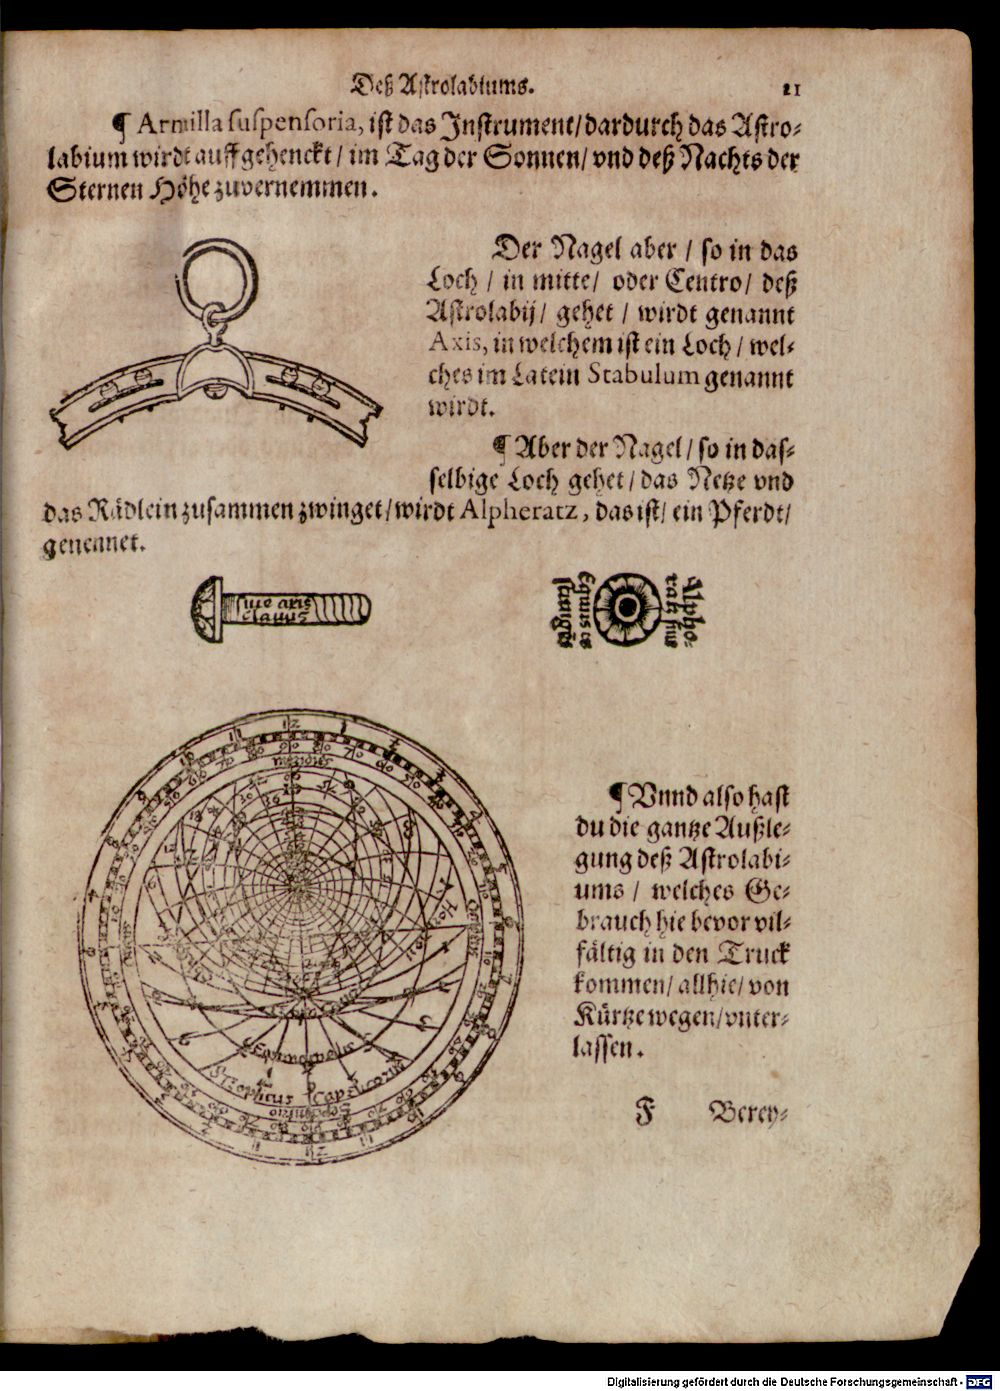 Deß Astrolabiums. 21
¶ Armilla suspensoria, ist das Instrument/ dardurch das Astro-
labium wirdt auffgehenckt/ im Tag der Sonnen/ vnd deß Nachts der
Sternen Höhe zuvernemmen.
Der Nagel aber / so in das
Loch / in mitte/ oder Centro/ deß
Astrolabij/ gehet / wirdt genannt
Axis, in welchem ist ein Loch / wel-
ches im Latein Stabulum genannt
wirdt.
¶ Aber der Nagel/ so in das-
selbige Loch gehet / das Netze vnd
das Rädlein zusammen zwinget/ wirdt Alpheratz, das ist/ ein Pferdt/
genennet.
siue axis
clauus
Alpho-
rath siue
Equus re-
¶ Vnnd also hast
du die gantze Außle-
gung deß Astrolabi-
ums / welches Ge-
brauch hie bevor vil-
fältig in den Truck
kommen/ allhie/ von
Kürtze wegen/ vnter-
lassen.
meridies
Oriens
Equinoctialis
Tropicus Capricorni
Septentrio
F Berey-
Digitalisierung gefördert durch die Deutsche Forschungsgemeinschaft - DFG